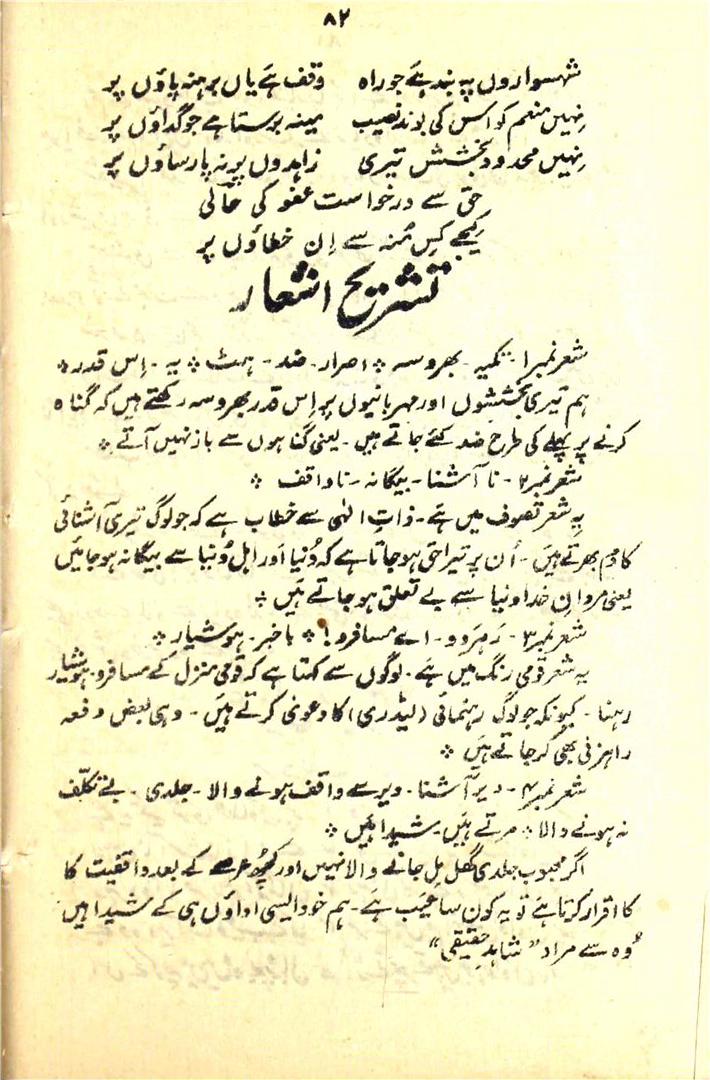 ۸۲
شہسواروں پہ بند ہے جو راہ وقف ہے یاں برہنہ پاؤں پر
نہیں منعم کو اس کی بوند نصیب مینہ برستا ہے جو گداؤں پر
نہیں محدود بخشش تیری زاہدوں پر نہ پارساؤں پر
حق سے درخواست عفو کی حالی
کیجے کس مُنہ سے اِن خطاؤں پر
تشریح اشعار
شعر نمبر۱ - تکیہ - بھروسہ ٭ اصرار - ضد - ہٹ ٭ یہ - اِس قدر ٭
ہم تیری بخششوں اور مہربانیوں پر اِس قدر بھروسہ رکھتے ہیں کہ گناہ
کرنے پر پہلے کی طرح ضد کئے جاتے ہیں - یعنی گناہوں سے باز نہیں آتے ٭
شعر نمبر۲ - نا آشنا - بیگانہ - ناواقف ٭
یہ شعر تصوف میں ہے - ذاتِ الٰہی سے خطاب ہے کہ جو لوگ تیری آشنائی
کا دم بھرتے ہیں - اُن پر تیرا حق ہو جاتا ہے کہ دُنیا اور اہل دُنیا سے بیگانہ ہو جائیں
یعنی مردانِ خدا دنیا سے بے تعلق ہو جاتے ہیں ٭
شعر نمبر۳ - رَہرَوو - اے مسافرو! ٭ باخبر - ہوشیار ٭
یہ شعر قومی رنگ میں ہے - لوگوں سے کہتا ہے کہ قومی منزل کے مسافرو - ہوشیار
رہنا - کیونکہ جو لوگ رہنمائی (لیڈری) کا دعویٰ کرتے ہیں - وہی بعض دفعہ
راہزنی بھی کر جاتے ہیں ٭
شعر نمبر۴ - دیر آشنا - دیر سے واقف ہونے والا - جلدی - بے تکلّف
نہ ہونے والا ٭ مرتے ہیں - شیدا ہیں ٭
اگر محبوب جلدی گھل مِل جانے والا نہیں اور کچھ عرصے کے بعد واقفیت کا
کا اقرار کرتا ہے تو یہ کون سا عیب ہے - ہم خود ایسی اداؤں ہی کے شیدا ہیں
"وہ سے مراد" شاہدِ حقیقی"